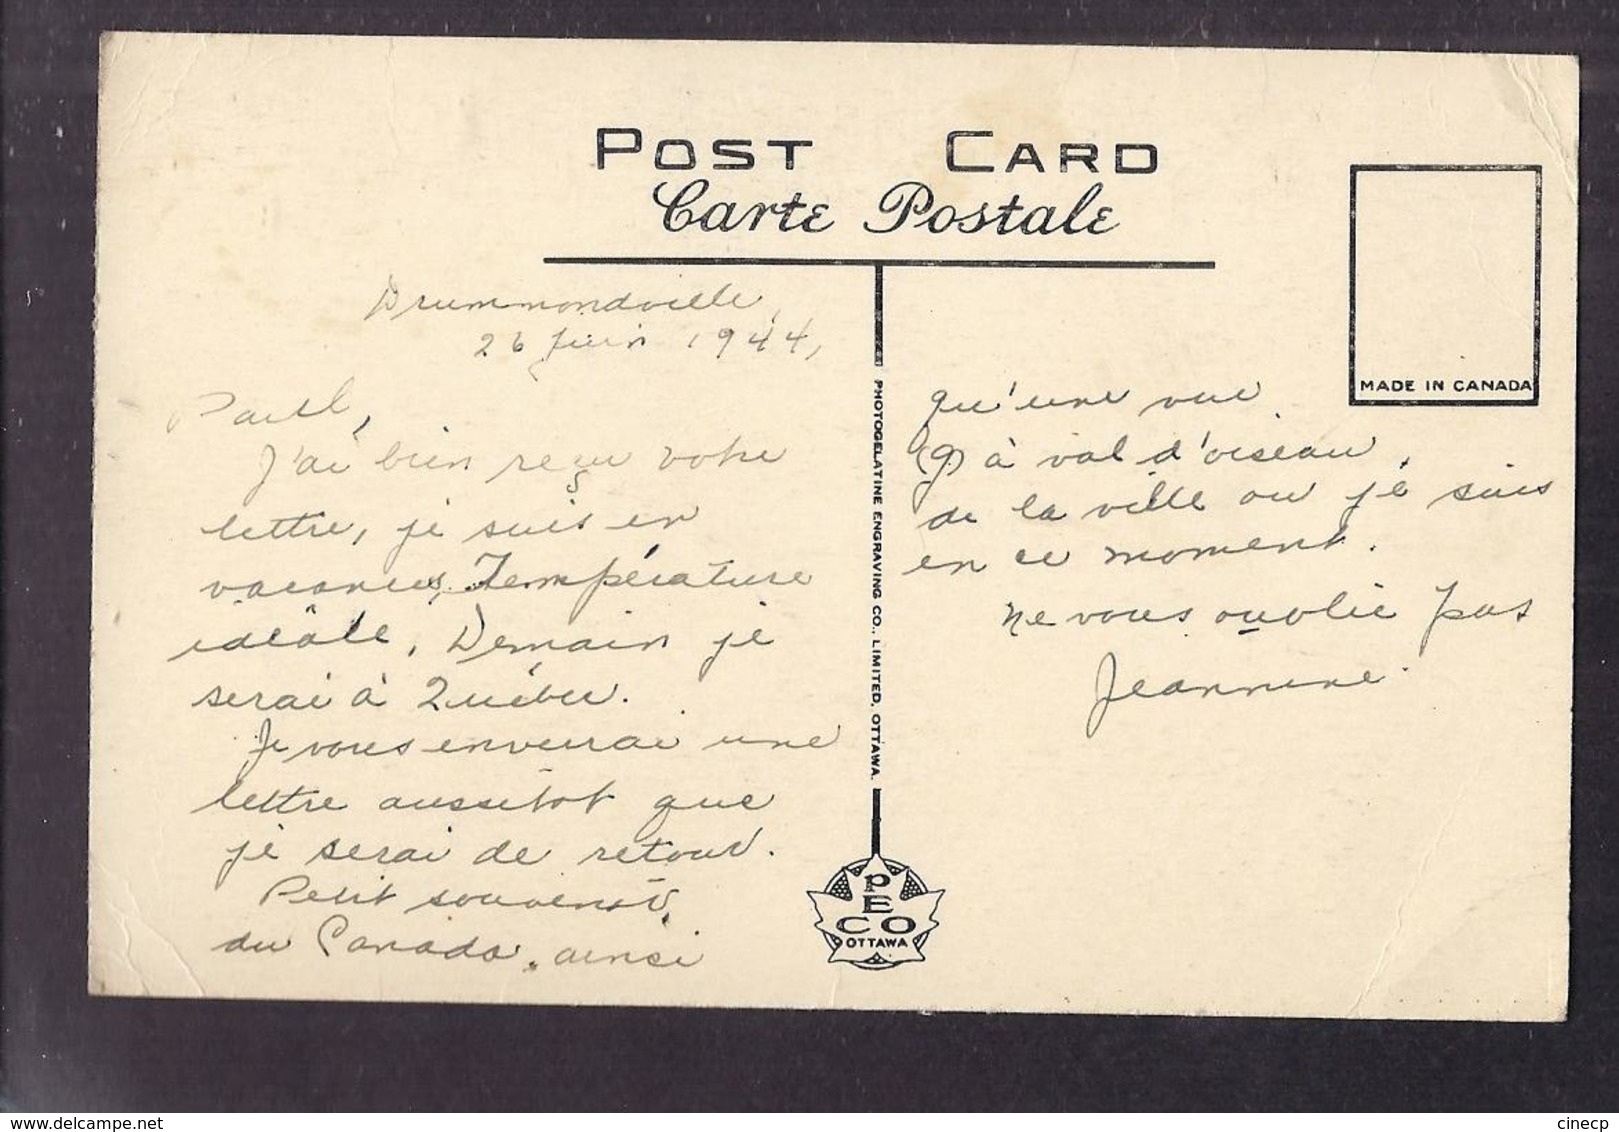 POST CARD
Carte Postale
Drummondville,
26 juin 1944,
Paul,
J'ai bien reçu votre
lettre, je suis en
vacances, Température
idéale, Demain je
serai à Québec.
Je vous enverrai une
lettre aussitôt que
je serai de retour.
Petit souvenir,
du Canada, ainsi
PHOTOGELATINE ENGRAVING CO., LIMITED, OTTAWA.
PECO
OTTAWA
MADE IN CANADA
qu'une vue
(9) à val d'oiseau,
de la ville ou je suis
en ce moment.
ne vous oublie pas
Jeannine
cinecp